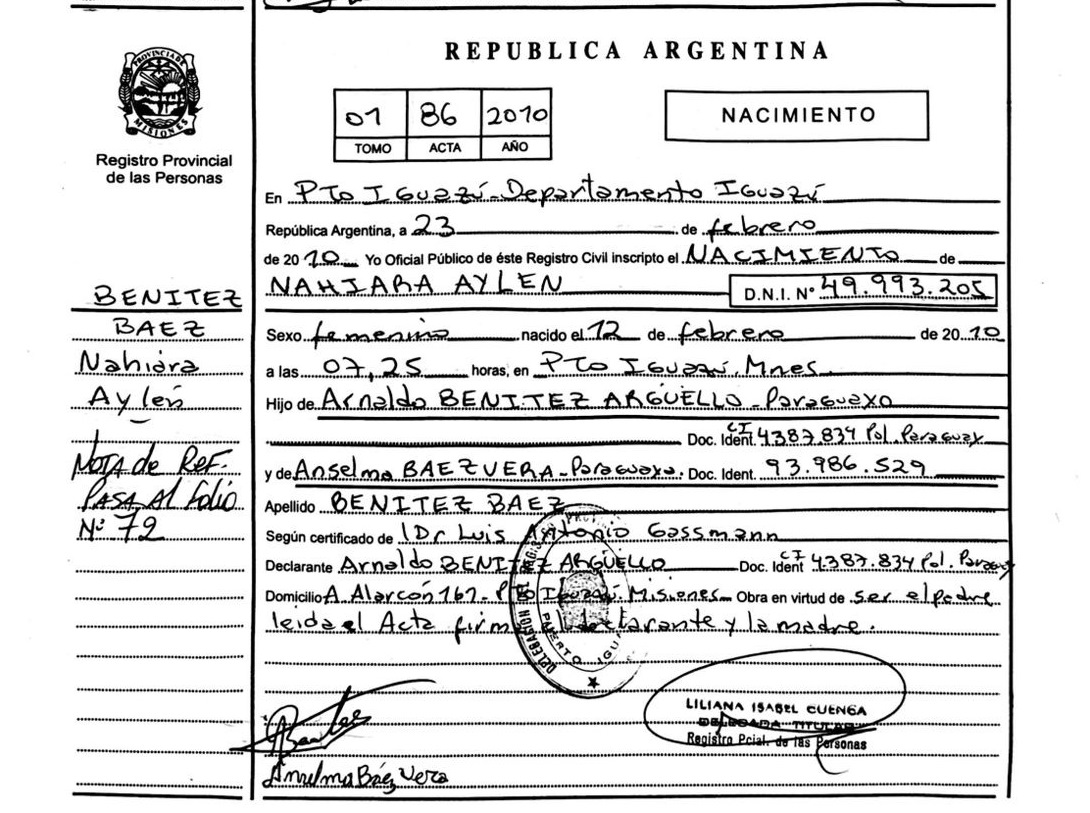 PROVINCIA DE
MISIONES
Registro Provincial
de las Personas
BENITEZ
BAEZ
Nahiara
Aylén
NOTA de REF.
PASA AL folio
Nº 72
REPUBLICA ARGENTINA
01 86 2010
TOMO ACTA AÑO
NACIMIENTO
En PTO IGUAZÚ - Departamento IGUAZÚ
República Argentina, a 23 de febrero
de 2010 Yo Oficial Público de éste Registro Civil inscripto el NACIMIENTO de
NAHIARA AYLEN D.N.I. Nº 49.993.205
Sexo femenino nacido el 12 de febrero de 2010
a las 07,25 horas, en PTO IGUAZÚ, Mnes.
Hijo de Arnaldo BENITEZ ARGÜELLO - Paraguayo
Doc. Ident. CI 4387.834 Pol. Paraguay
y de Anselma BAEZ VERA - Paraguaya. Doc. Ident. 93.986.529
Apellido BENITEZ BAEZ
Según certificado de Dr Luis Antonio Gassmann
Declarante Arnaldo BENITEZ ARGÜELLO Doc. Ident CI 4.387.834 Pol. Paraguay
Domicilio A. Alarcón 161 - PTO IGUAZÚ. Misiones Obra en virtud de ser el padre
leida el Acta firman el declarante y la madre.
DELEGACION DEL REG.
PUERTO IGU
LILIANA ISABEL CUENCA
DELEGADA TITULAR
Registro Pcial. de las Personas
Anselma Báez Vera